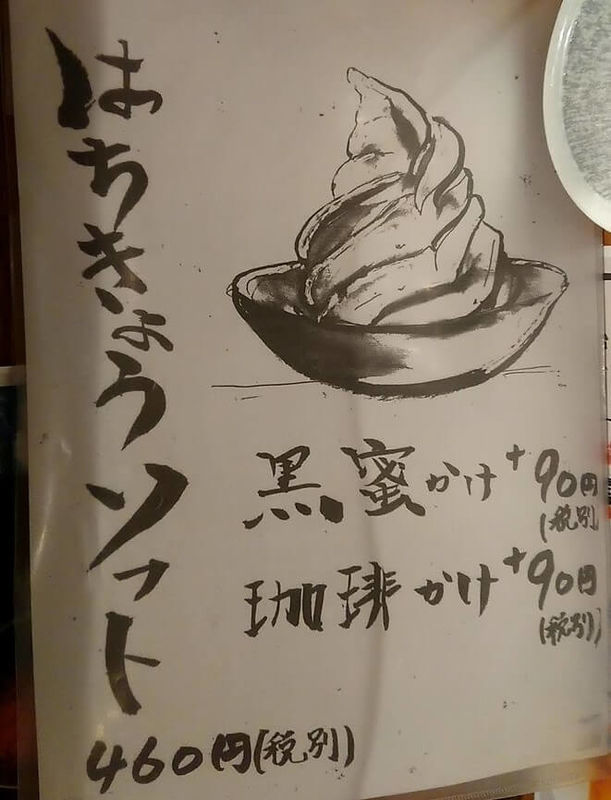 はちきょうソフト
460円(税別)
黒蜜かけ+90円
(税別)
珈琲かけ+90円
(税別)